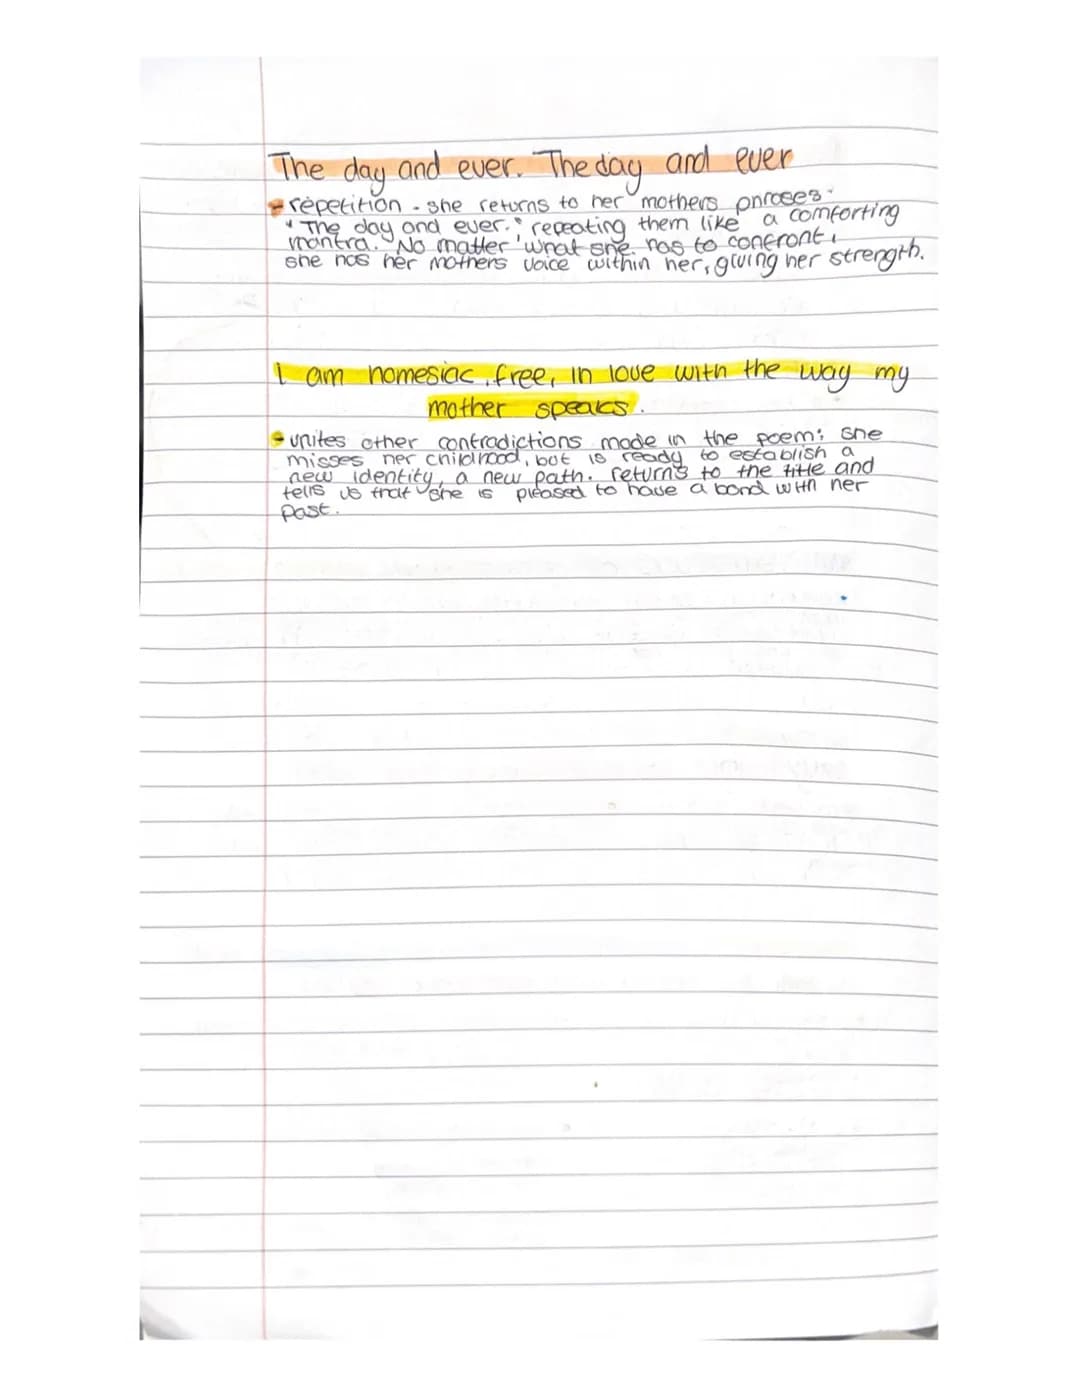 The day and ever. The day and ever
- repetition - she returns to her mothers phrases
"The day and ever." repeating them like a comforting
mantra. No matter what she has to confront,
she has her mothers voice within her, giving her strength.
I am homesiac, free, in love with the way my
mother speaks.
- unites other contradictions made in the poem: she
misses her childhood, but is ready to establish a
new identity, a new path. returns to the title and
tells us that she is pleased to have a bond with her
past.